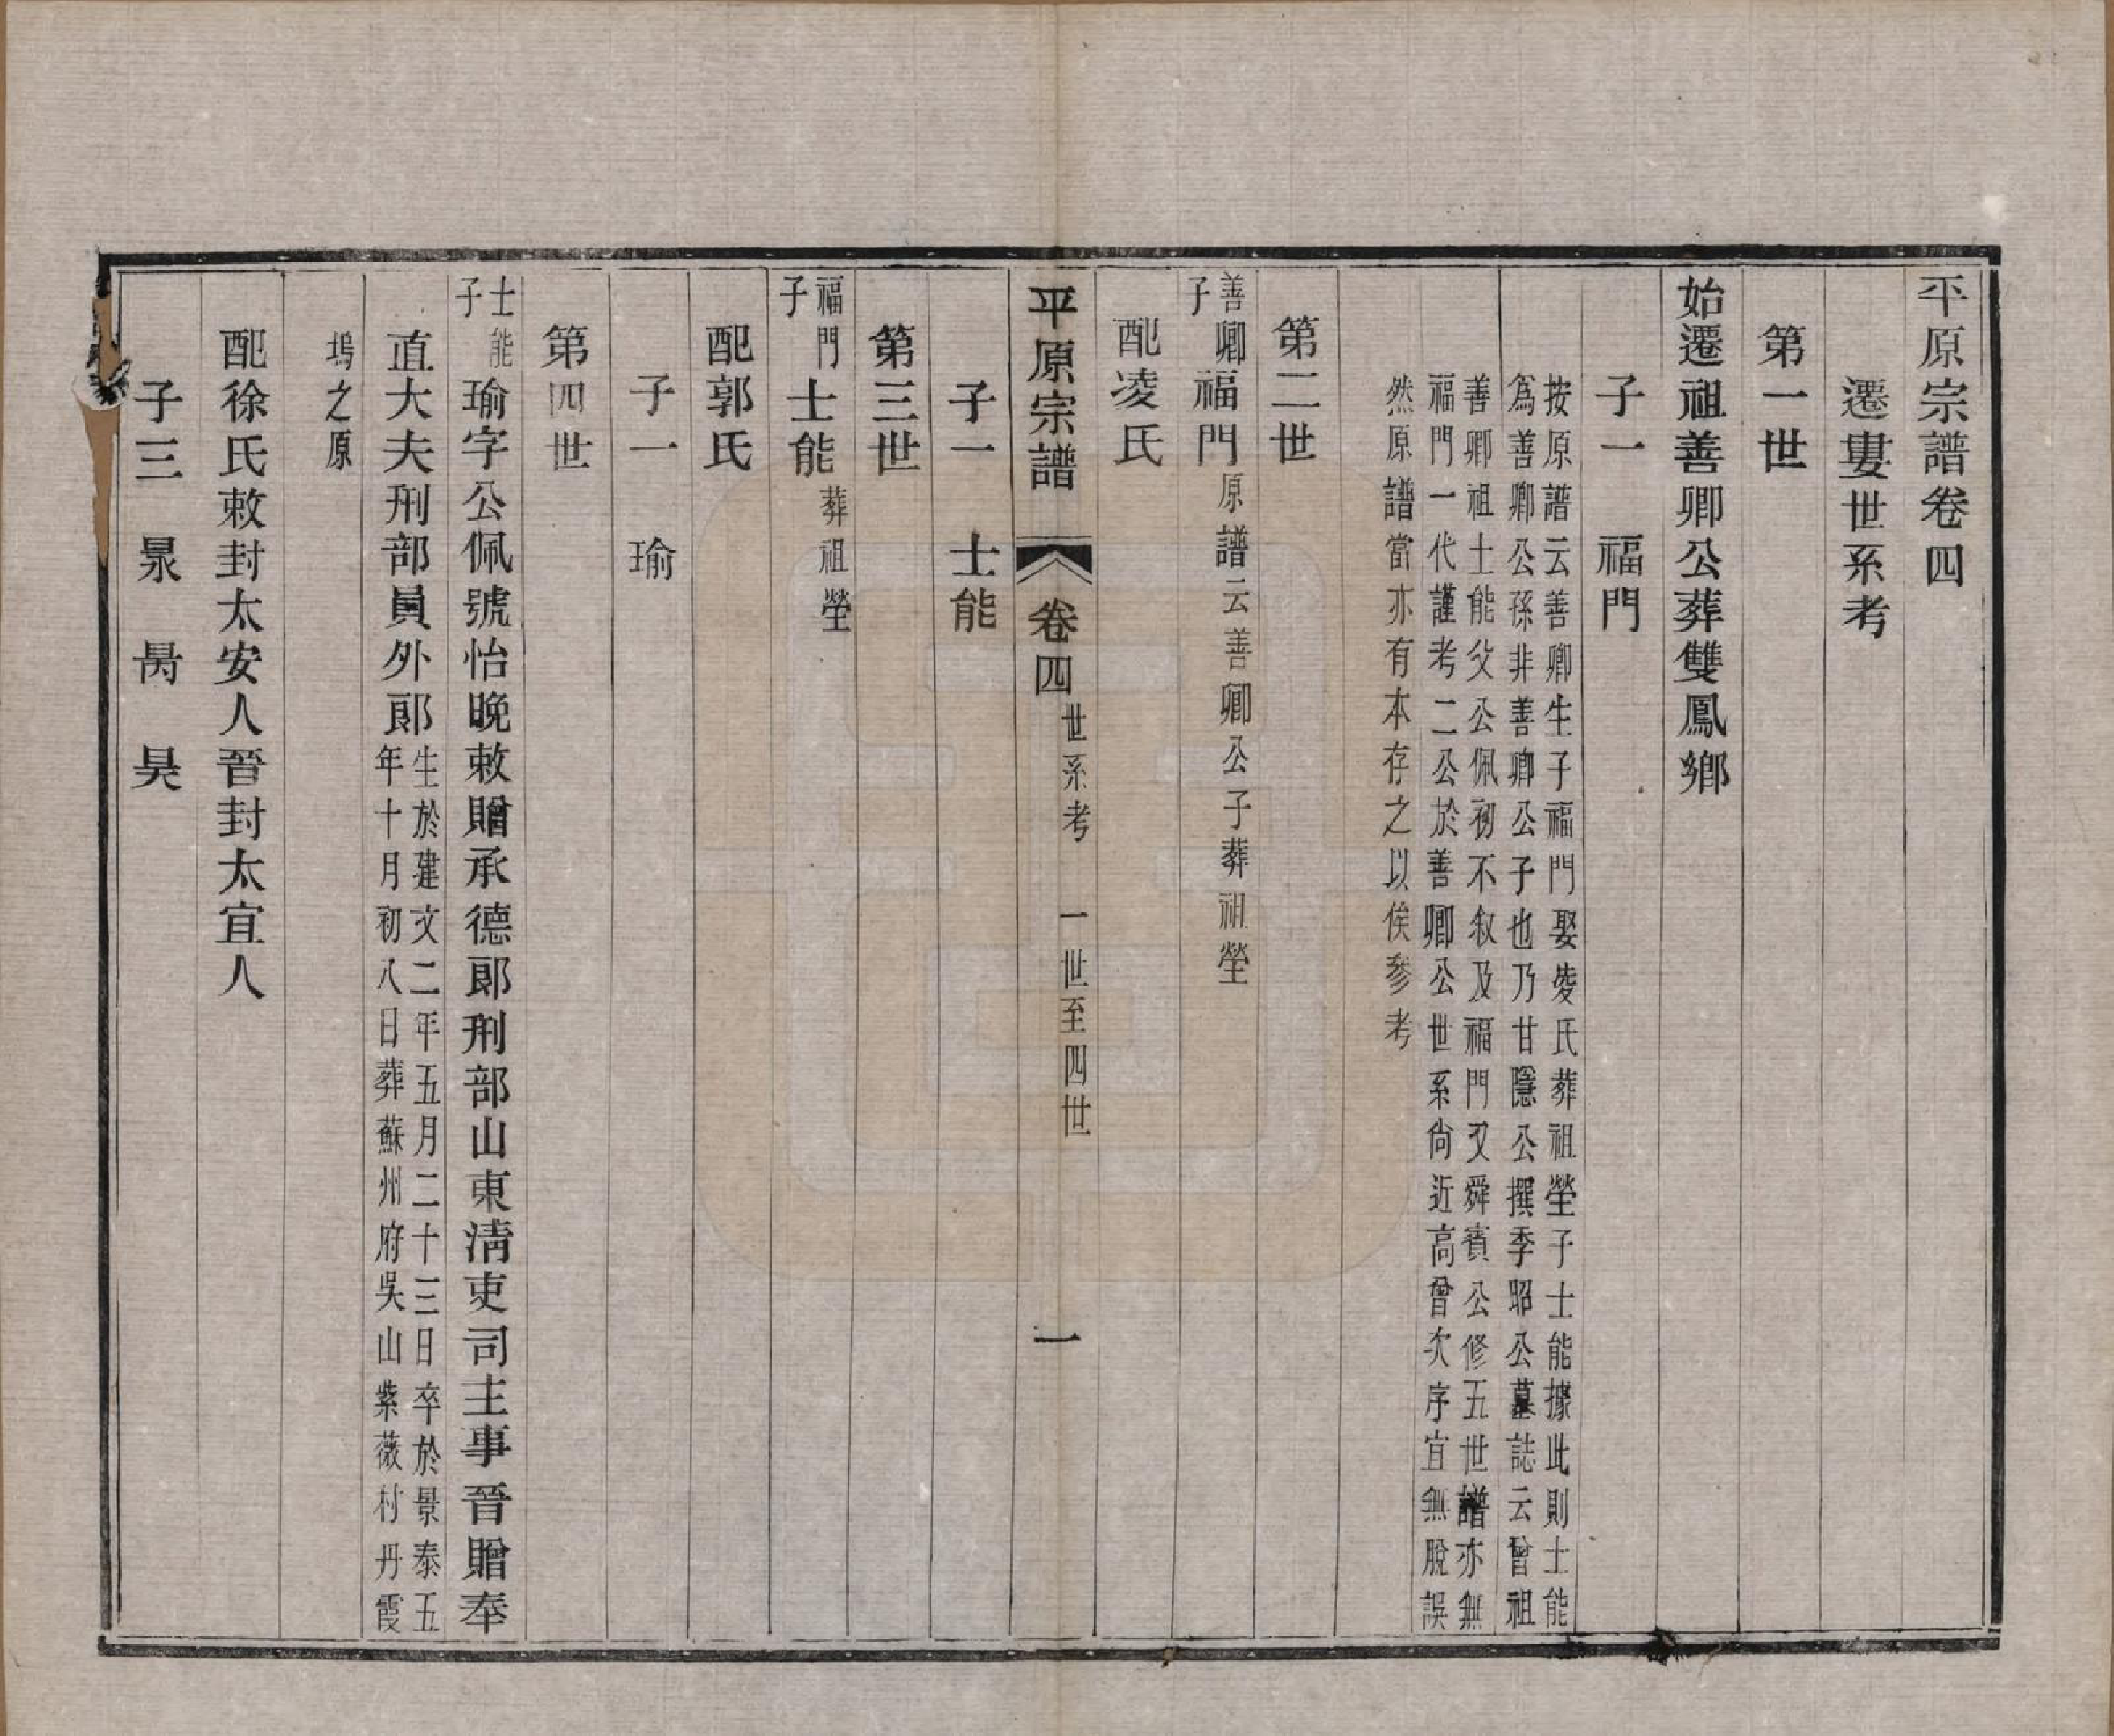 平原宗譜卷四
遷婁世系考
第一世
始遷祖善卿公葬雙鳳鄉
子一　福門
按原譜云善卿生子福門娶淩氏葬祖塋子士能據此則士能
為善卿公孫非善卿公子也乃甘隱公撰季昭公墓誌云曾祖
善卿祖士能父公佩初不叙及福門又舜賓公修五世譜亦無
福門一代謹考二公於善卿公世系尙近高曾次序宜無脫誤
然原譜當亦有本存之以俟參考
第二世
善卿子福門原譜云善卿公子葬祖塋
配凌氏
平原宗譜　卷四　世系考　一世至四世　一
子一　士能
第三世
福門子士能葬祖塋
配郭氏
子一　瑜
第四世
士能子瑜字公佩號怡晚敕贈承德郞刑部山東淸吏司主事晉贈奉
直大夫刑部員外郞生於建文二年五月二十三日卒於景泰五
年十月初八日葬蘇州府吳山紫薇村丹霞
塢之原
配徐氏敕封太安人晉封太宜人
子三　昺　昊